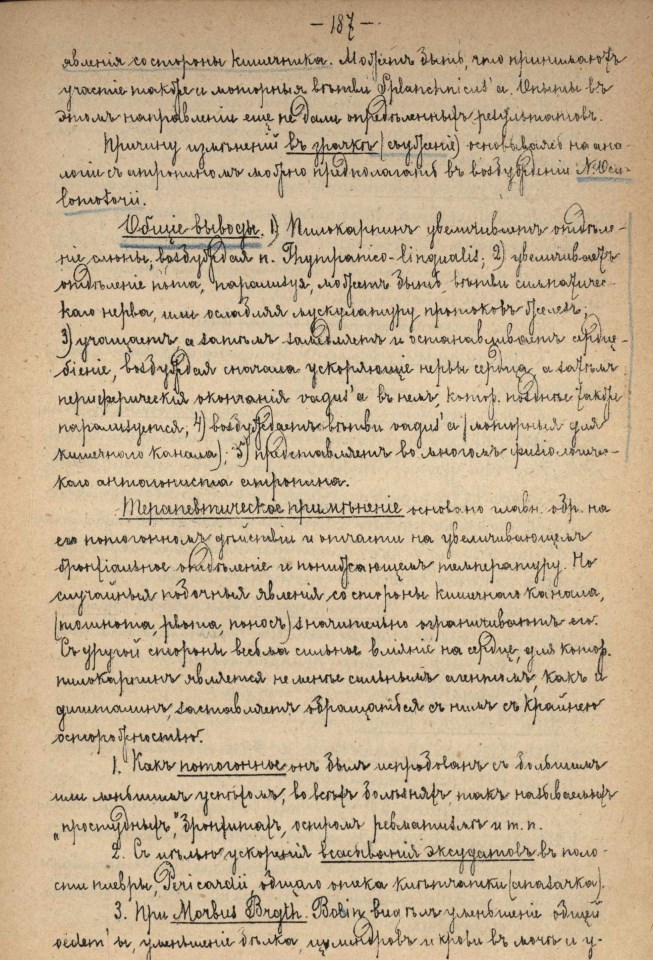 — 187 —
явленія со стороны кишечника. Можетъ быть, что принимаютъ
участіе также и моторныя вѣтви Splanchnicus'а. Опыты въ
этомъ направленіи еще не дали опредѣленныхъ результатовъ.
Причину измѣненій въ зрачкѣ (съуженіе) основываясь на ана-
логіи съ атропиномъ можно предполагать въ возбужденіи N. Ocu-
lomotorii.
Общіе выводы. 1) Пилокарпинъ увеличиваетъ отдѣле-
ніе слюны, возбуждая n. Thympanico-lingualis; 2) увеличиваетъ
отдѣленіе пота, парализуя, можетъ быть, вѣтви симпатичес-
каго нерва, или ослабляя мускулатуру протоковъ железъ;
3) учащаетъ а затѣмъ замедляетъ и останавливаетъ сердце-
біеніе, возбуждая сначала ускоряющіе нервы сердца, а затѣмъ
периферическія окончанія vagus'а въ немъ, котор. позднѣе также
парализуется; 4) возбуждаетъ вѣтви vagus'а (моторныя для
кишечнаго канала); 5) представляетъ во многомъ физіологичес-
каго антагониста атропина.
Терапевтическое примѣненіе основано главн. обр. на
его потогонномъ дѣйствіи и отчасти на увеличивающемъ
бронхіальное отдѣленіе и понижающемъ температуру. Но
случайныя побочныя явленія со стороны кишечнаго канала,
(тошнота, рвота, поносъ) значительно ограничиваютъ его.
Съ другой стороны весьма сильное вліяніе на сердце, для котор.
пилокарпинъ является не менѣе сильнымъ агентомъ, какъ и
дигиталинъ, заставляетъ обращаться съ нимъ съ крайнею
осторожностью.
1. Какъ потогонное онъ былъ испробованъ съ большимъ
или меньшимъ успѣхомъ, во всѣхъ болѣзняхъ такъ называемыхъ
„простудныхъ", бронхитахъ, остромъ ревматизмѣ и т. п.
2. Съ цѣлью ускоренія всасыванія эксудатовъ въ поло-
сти плевры, Pericardii, общаго отека клѣтчатки (anasarka).
3. При Morbus Brgth. Bobin видѣлъ уменьшеніе общей
oedem'ы, уменьшеніе бѣлка, цилиндровъ и крови въ мочѣ и у-